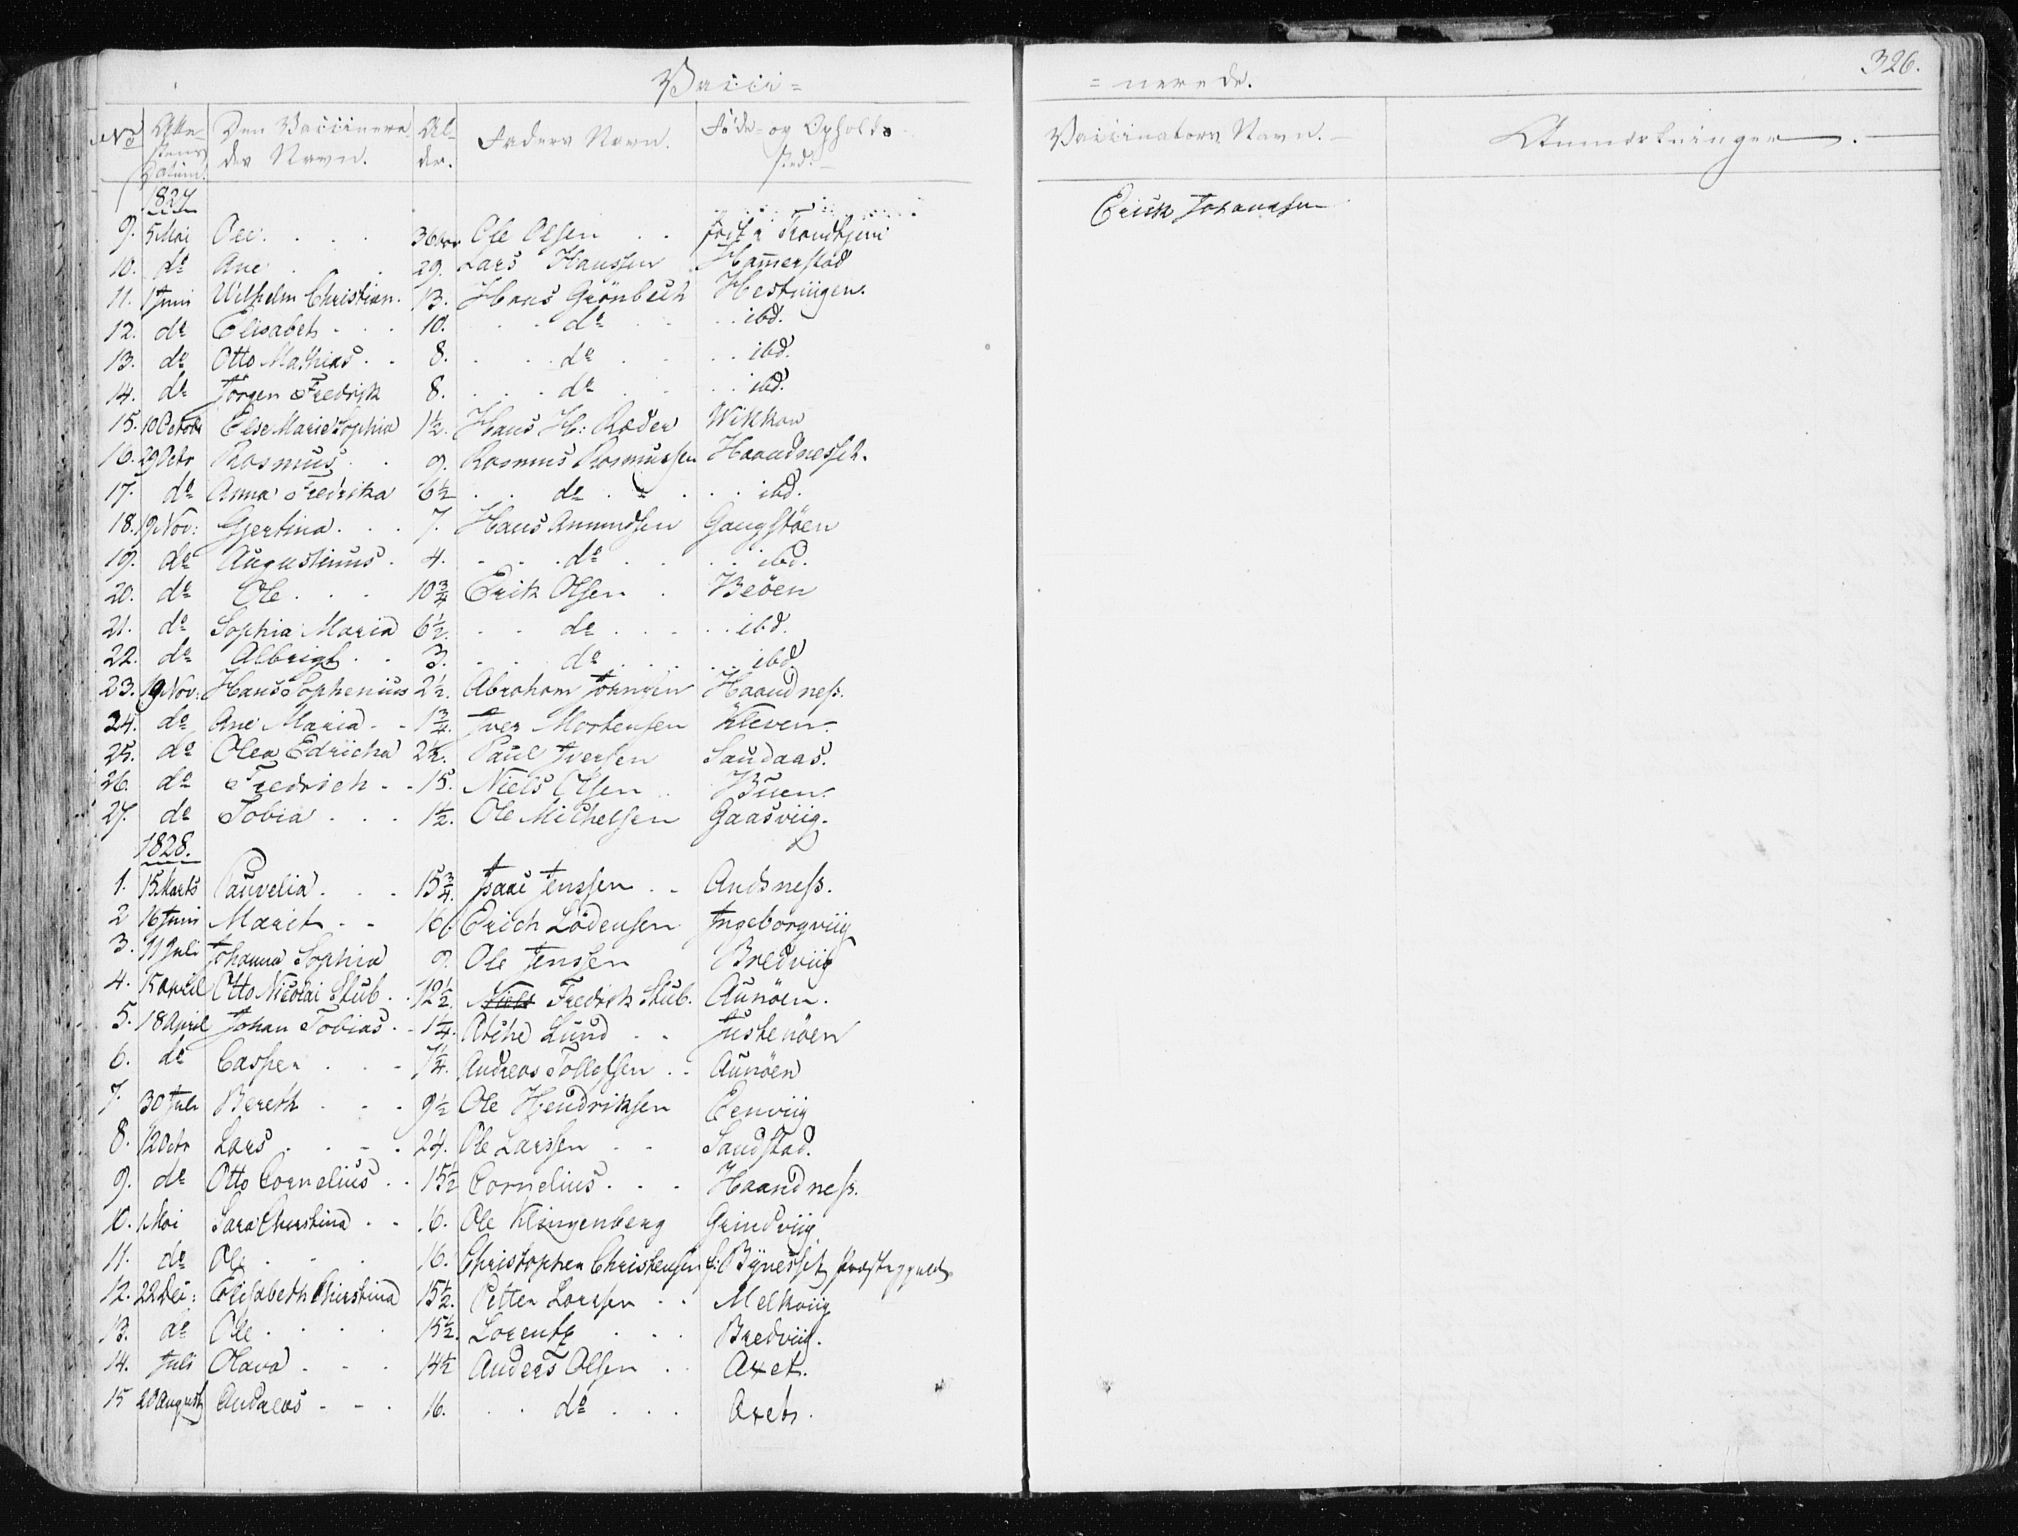 Vacci=
= nerede.
326.
No Attestens Datum. Den Vaccineredes Navn. Alder. Faders Navn. Føde- og Opholdssted. Vaccinators Navn. Anmærkninger.
1827
9. 5 Mai Ole. Ole Olsen Erick Johansen
10. do Ane 29. Lars Hanssen Hamerstad
11. 1 Juni Wilhelm Christian. 13. Hans Grönbech Hestviigen.
12. do Elisabet 10. do ibd.
13. do Otto Mathias 8. do ibd.
14. do Jörgen Fredrik 8. do ibd.
15. 10 Octobr Else Marie Sophia 1½. Hans H: Røder Wikkan
16. 29 Octr Rasmus 9. Rasmus Rasmussen Haandnesset.
17. do Anna Fredrika 6½ do ibd.
18. 19 Nov: Gjertina 7. Hans Amundsen Gangstöen
19. do Augustinus 4. do ibd.
20. do Ole 10¾ Erik Olsen Beöen
21. do Sophia Maria 6½. do ibd.
22. do Albrigt 3. do ibd
23. 19 Nov: Hans Sophenius 2½. Abraham Haandness.
24. do Ane Maria 1¾. Iver Mortensen Kleven.
25. do Olea Edricha 2½. Paul Iversen Sandaas.
26. do Fredrich 15. Niels Olsen Buen.
27. do Tobia 1½. Ole Michelsen Gaasviig.
1828.
1. 15 Marts Paurelia 15¾. Isaac Jenssen Andsness.
2 16 Juni Marit 16. Erich Lödensen Ingeborgviig
3. 11 Juli Johanna Sophia 9. Ole Jenssen Bredviig
4. 15 April Otto Nicolai Stub 12½. Niels Fredrik Stub. Aunöen.
5. 18 April Johan Tobias 1¼. Lund Justenöen
6. do Casper 1¼. Andreas Tollefsen Aunöen
7. 30 Juli Bereth 9½ Ole Hendriksen Eenviig
8. 12 Octr Lars 24. Ole Larssen Sandstad.
9. do Otto Cornelius 15½ Cornelius Haandness.
10. 1 Mai Sara Christina 16. Ole Klingenberg Grindviig
11. do Ole 16. Christopher Christensen f: Bynesset Præstegjeld
12. 22 Dec: Elisabeth Christina 15½. Petter Larsen Melkviig
13. do Ole 15½. Lorentz Bredviig.
14. Juli Olava 14½ Anders Olsen Axet.
15 20 August Andreas 16. do Axet.